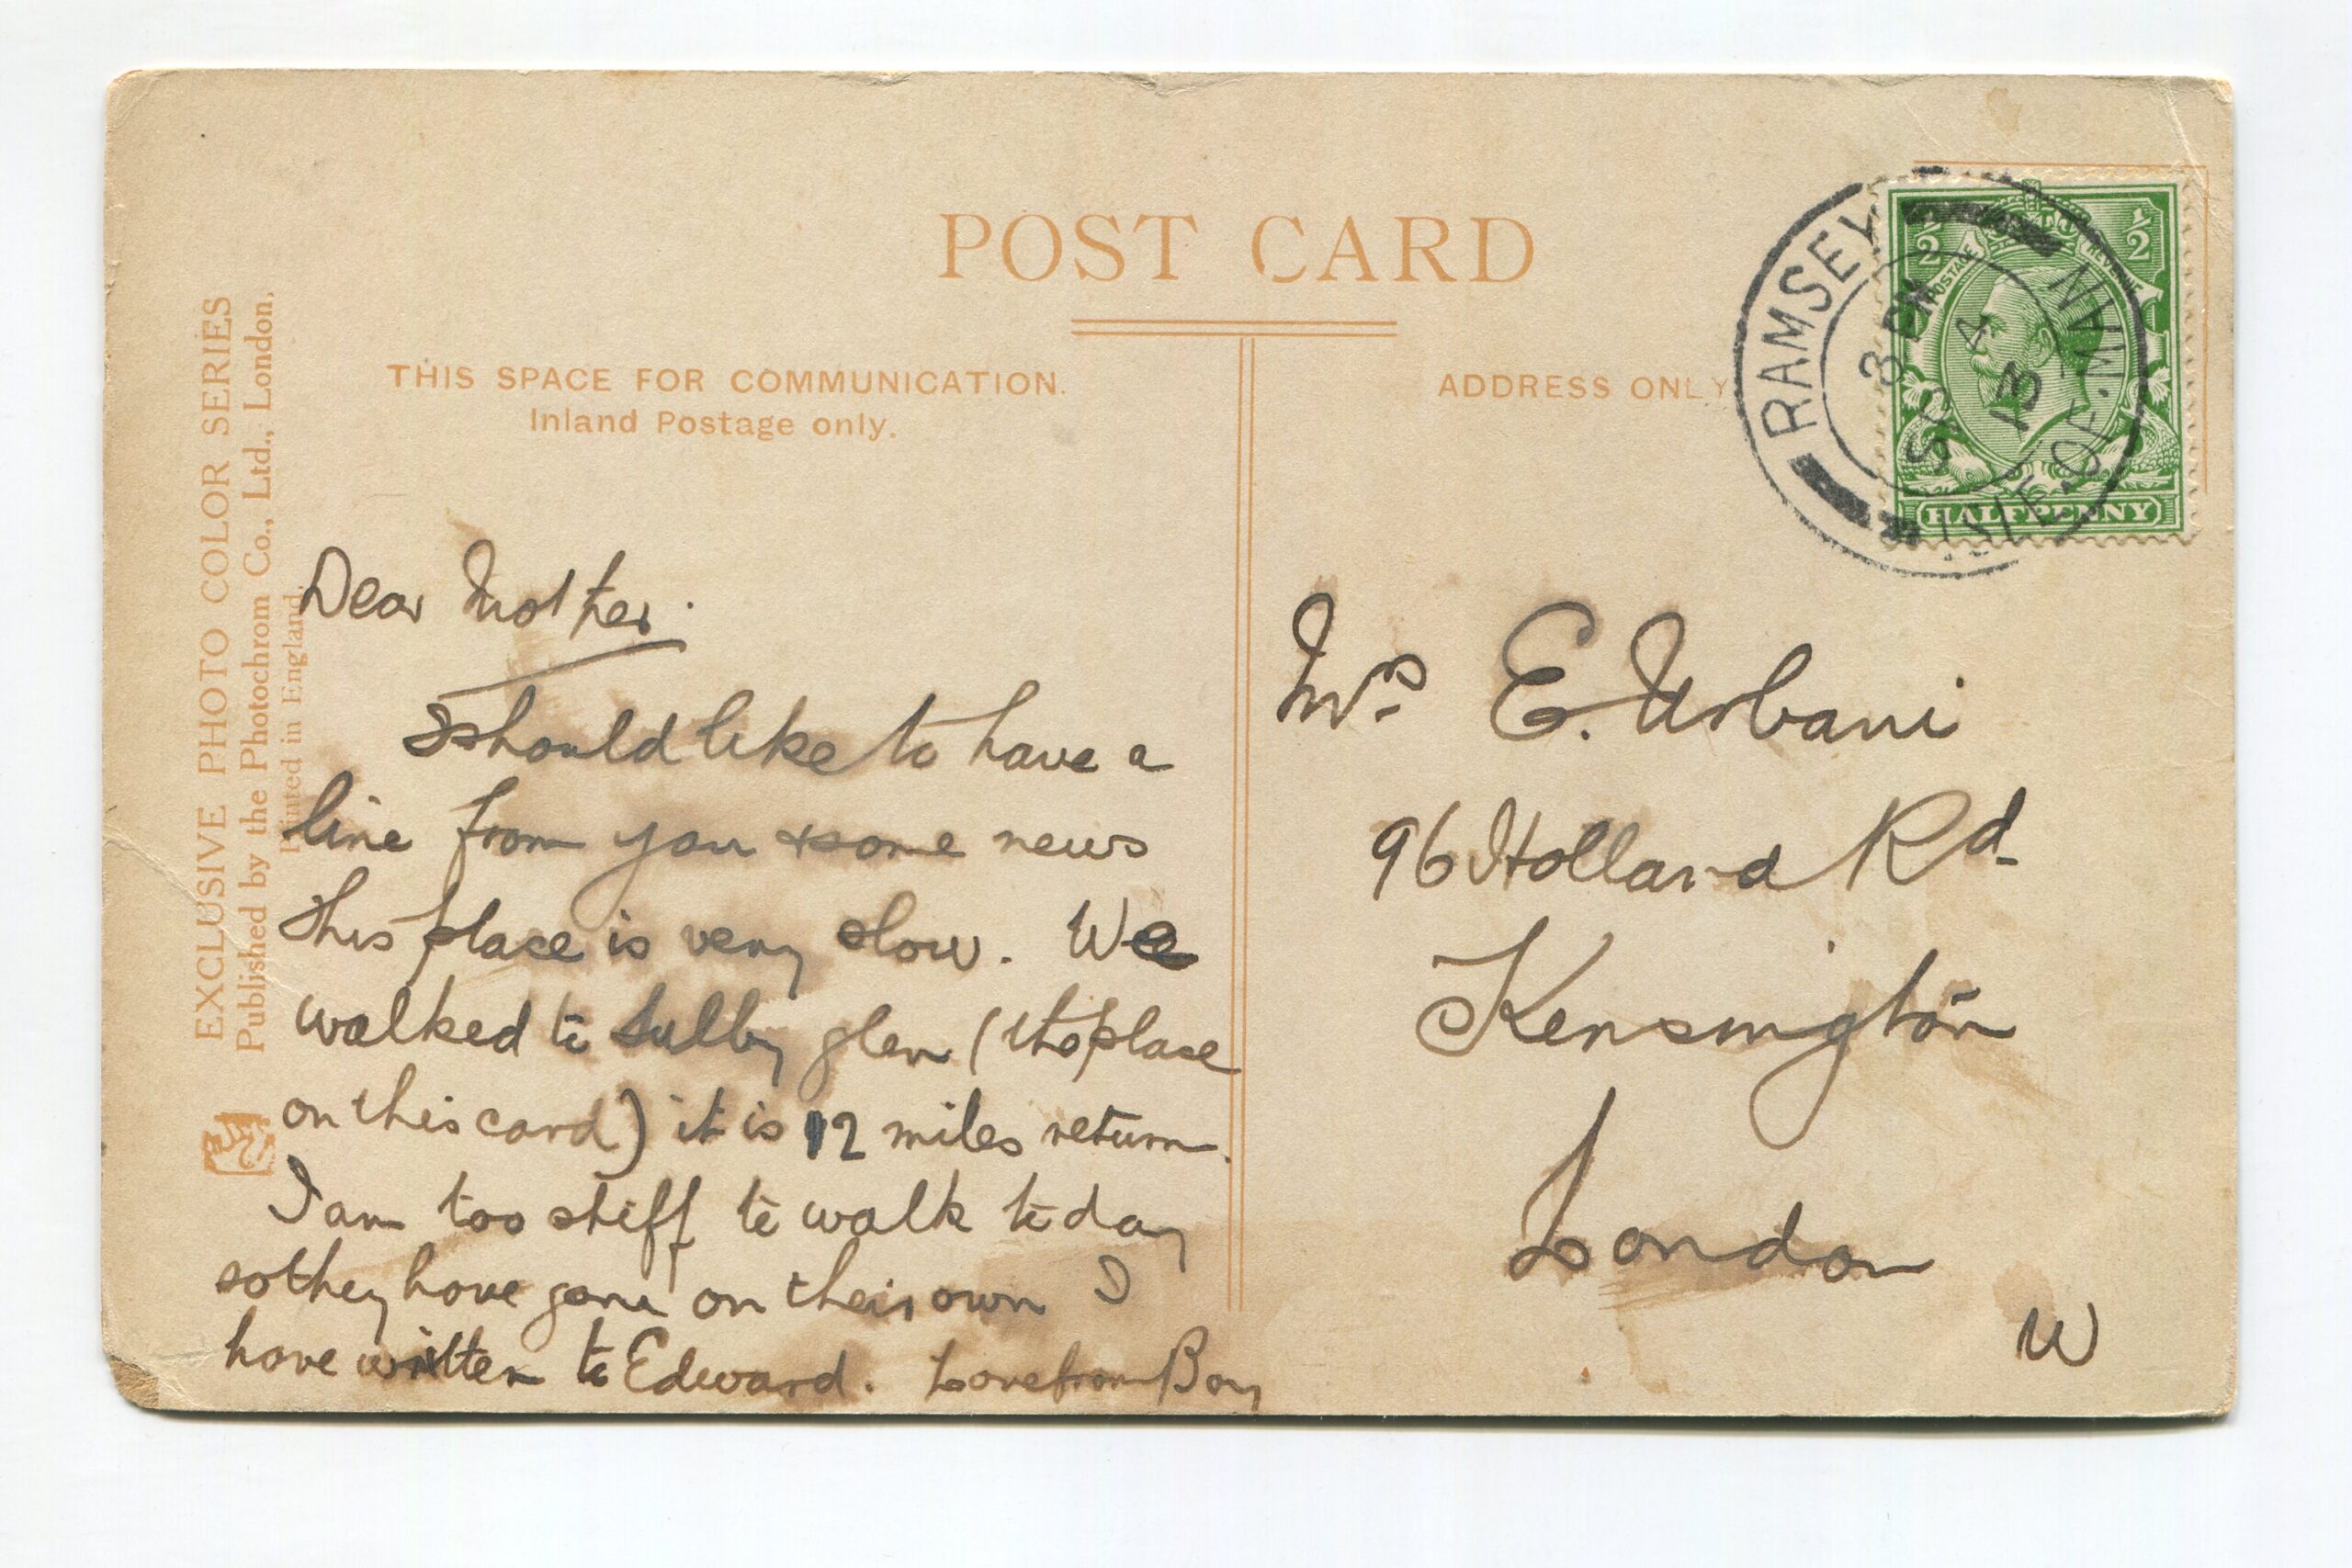 POST CARD
THIS SPACE FOR COMMUNICATION.
Inland Postage only.
ADDRESS ONLY
EXCLUSIVE PHOTO COLOR SERIES
Published by the Photochrom Co., Ltd., London.
Printed in England.
RAMSEY
ISLE.OF.MAN
3 PM
SP 4
13
1/2
1/2
POSTAGE
REVENUE
HALFPENNY
Dear Mother.
Should like to have a
line from you & some news
this place is very slow. We
walked to Sulby glen (the place
on this card) it is 12 miles return.
I am too stiff to walk to day
so they have gone on their own I
have written to Edward. Love from Boy
Mrs E. Urbani
96 Holland Rd
Kensington
London
W